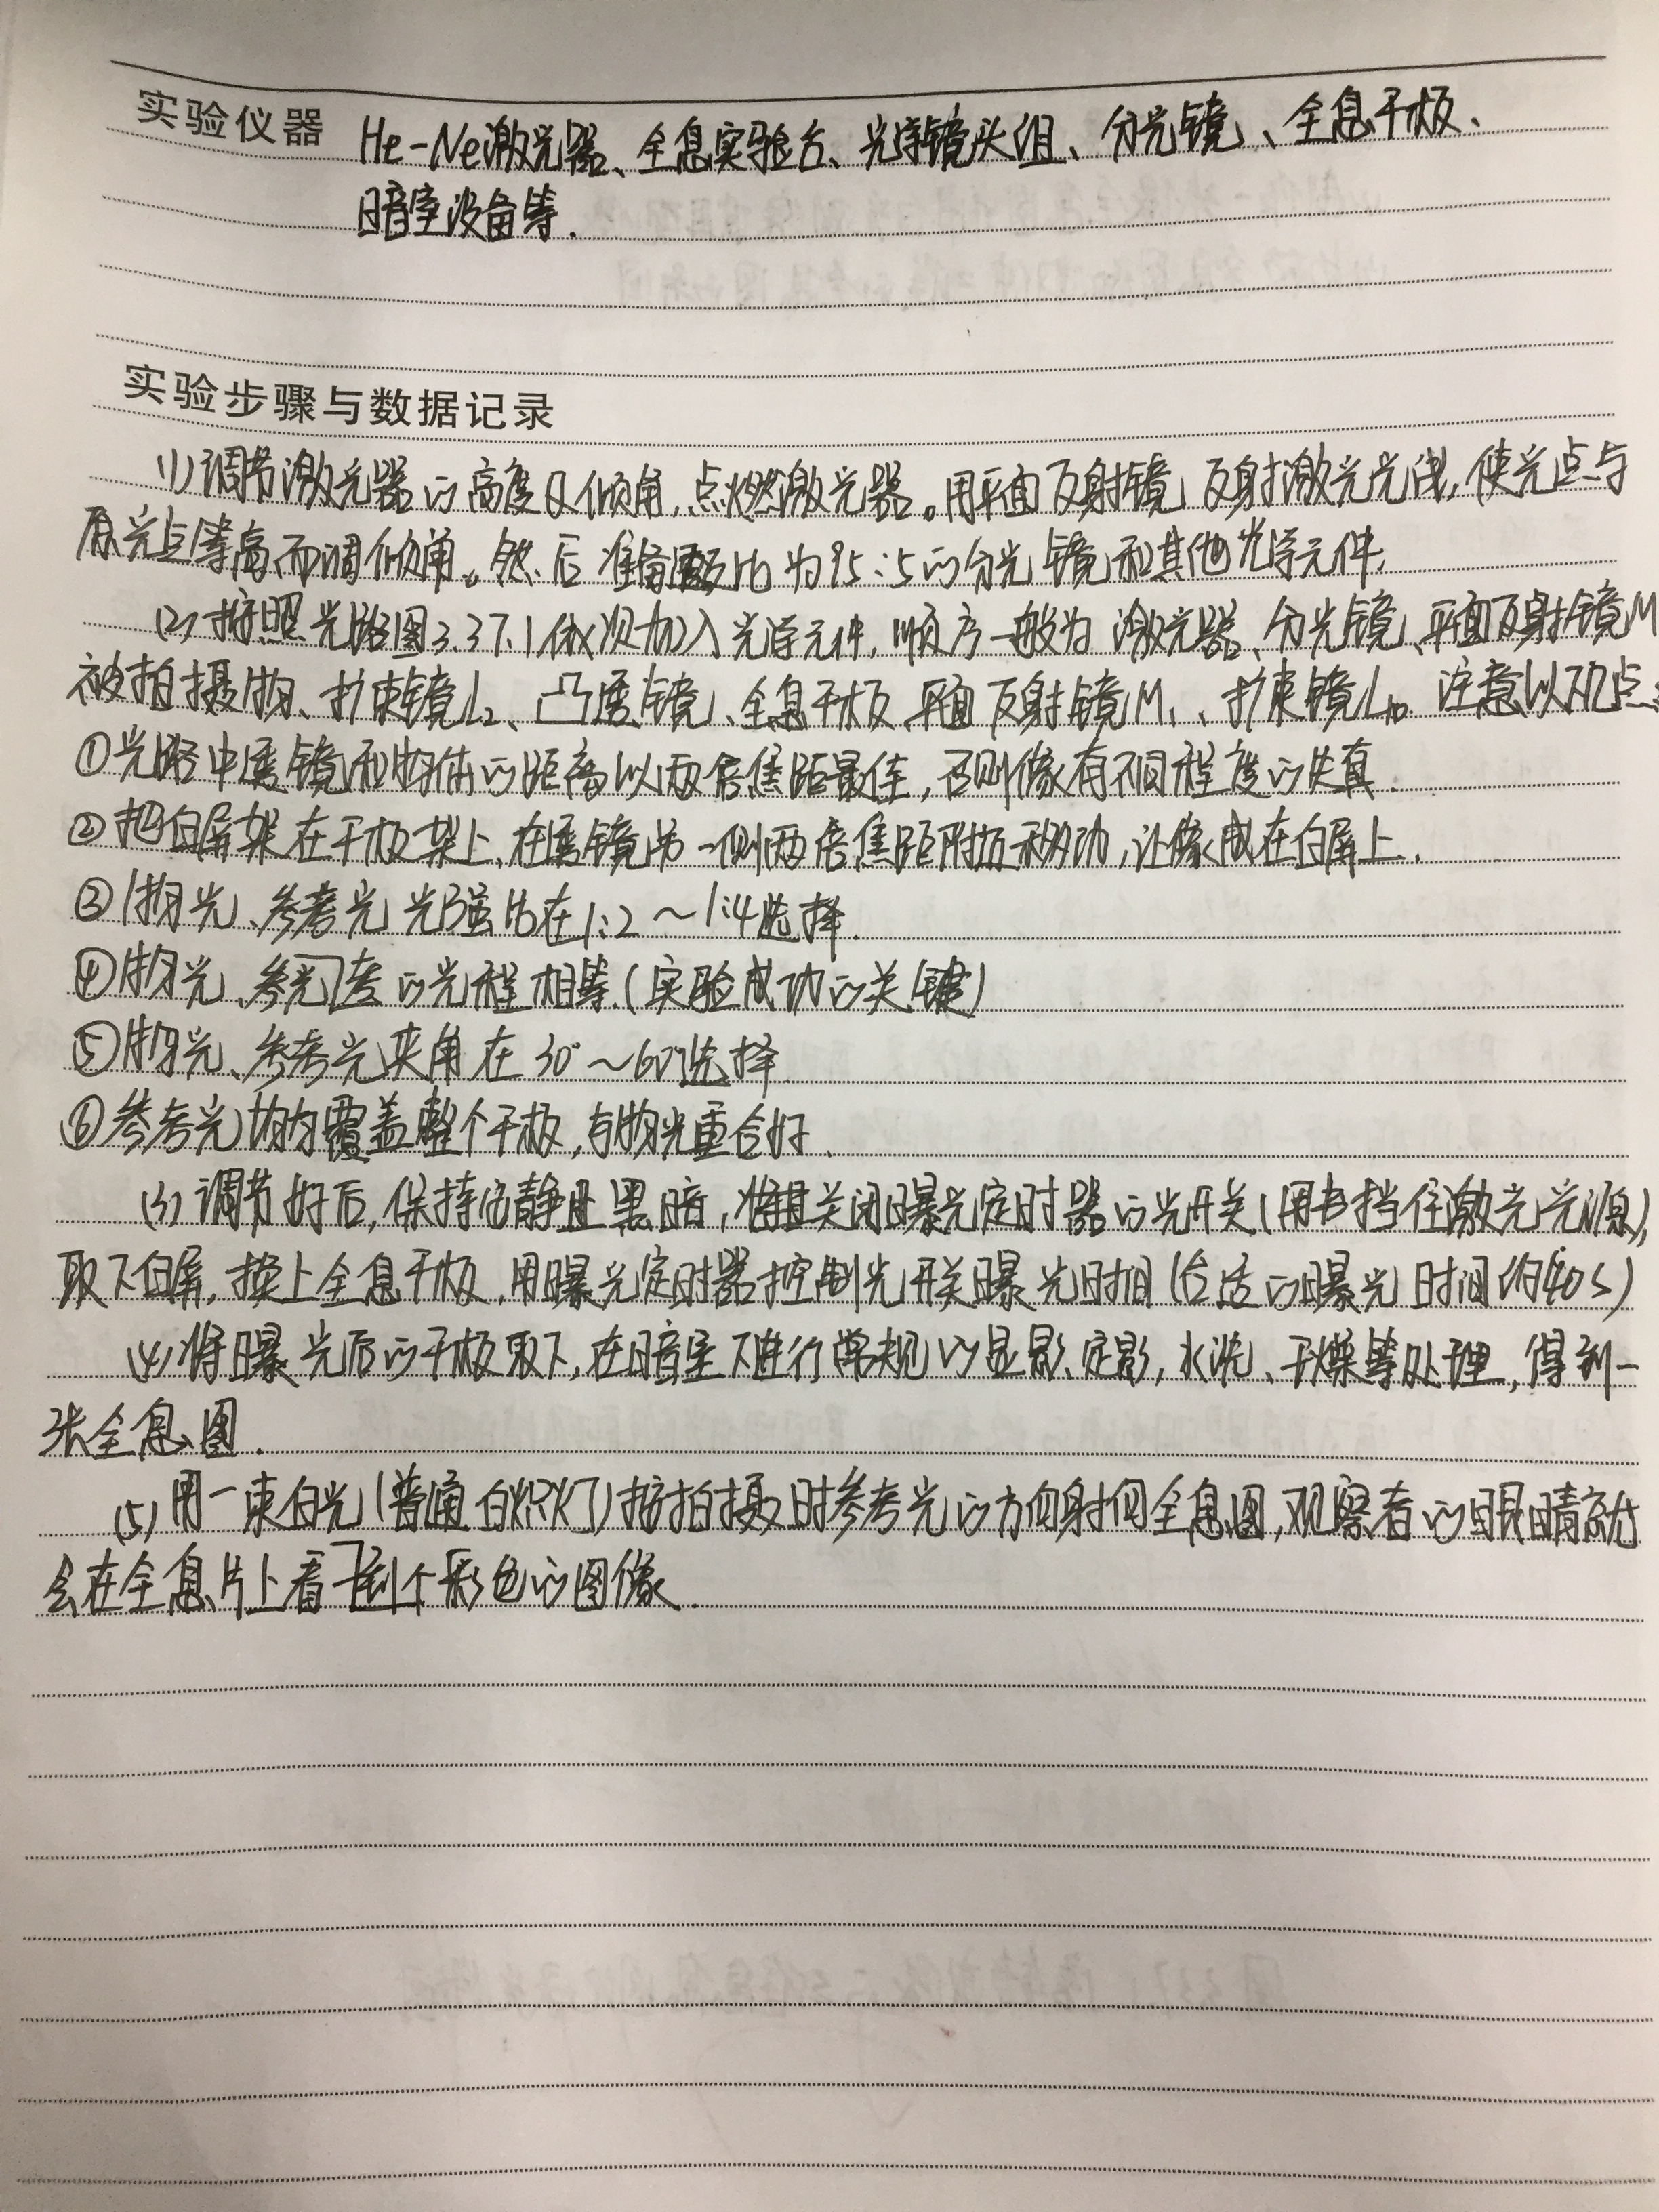 实验仪器 He-Ne激光器、全息实验台、光学镜头组、分光镜、全息干板、
暗室设备等.
实验步骤与数据记录
(1)调节激光器的高度及倾角,点燃激光器。用平面反射镜反射激光光线,使光点与
原光点等高而调倾角。然后准备 比为95:5的分光镜和其他光学元件.
(2)按照光路图3.37.1依次加入光学元件,顺序一般为激光器、分光镜、平面反射镜M
被拍摄物、扩束镜L2、凸透镜、全息干板、平面反射镜M1、扩束镜L1。注意以下几点:
①光路中透镜和物体的距离以两倍焦距最佳,否则像有不同程度的失真.
②把白屏架在干板架上,在透镜另一侧两倍焦距附近移动,让像成在白屏上.
③物光、参考光光强比在1:2~1:4选择.
④物光、参考光的光程相等.(实验成功的关键)
⑤物光、参考光夹角在30°~60°选择.
⑥参考光均匀覆盖整个干板,与物光重合好.
(3)调节好后,保持 静且黑暗, 关闭曝光定时器的光开关(用书挡住激光光源),
取下白屏,换上全息干板,用曝光定时器控制光开关曝光时间(合适的曝光时间约40s)
(4)将曝光后的干板取下,在暗室下进行常规的显影、定影,水洗、干燥等处理,得到一
张全息图.
(5)用一束白光(普通白炽灯)按拍摄时参考光的方向射向全息图,观察者的眼睛就
会在全息片上看到个彩色的图像.